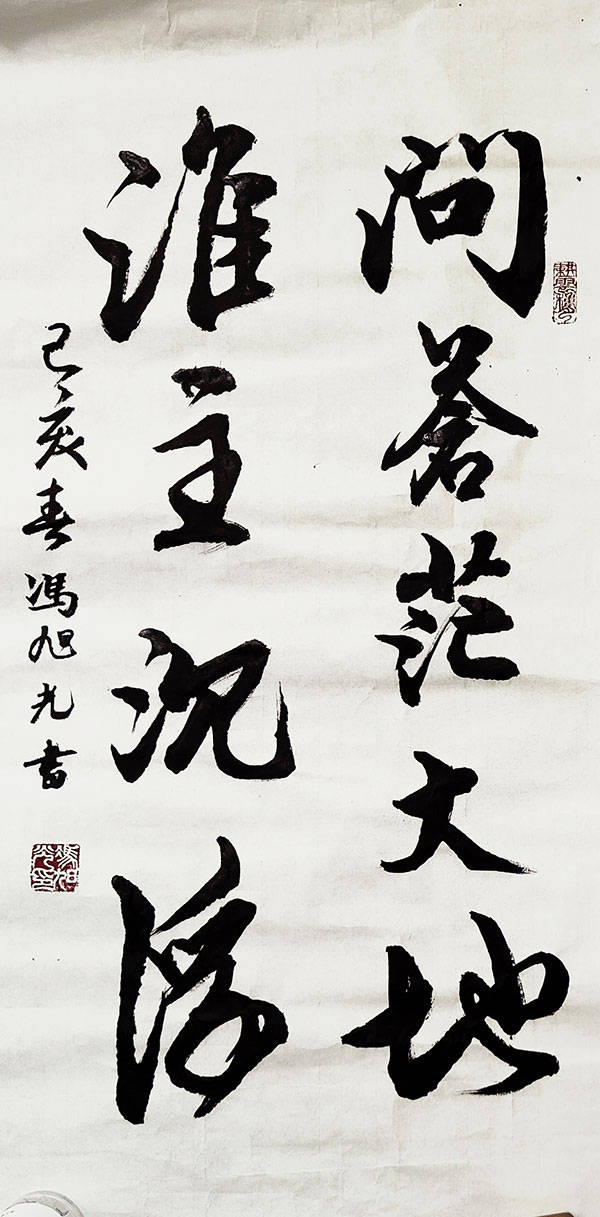 問蒼茫大地
誰主沉浮
己亥春馮旭光書
馮旭光印